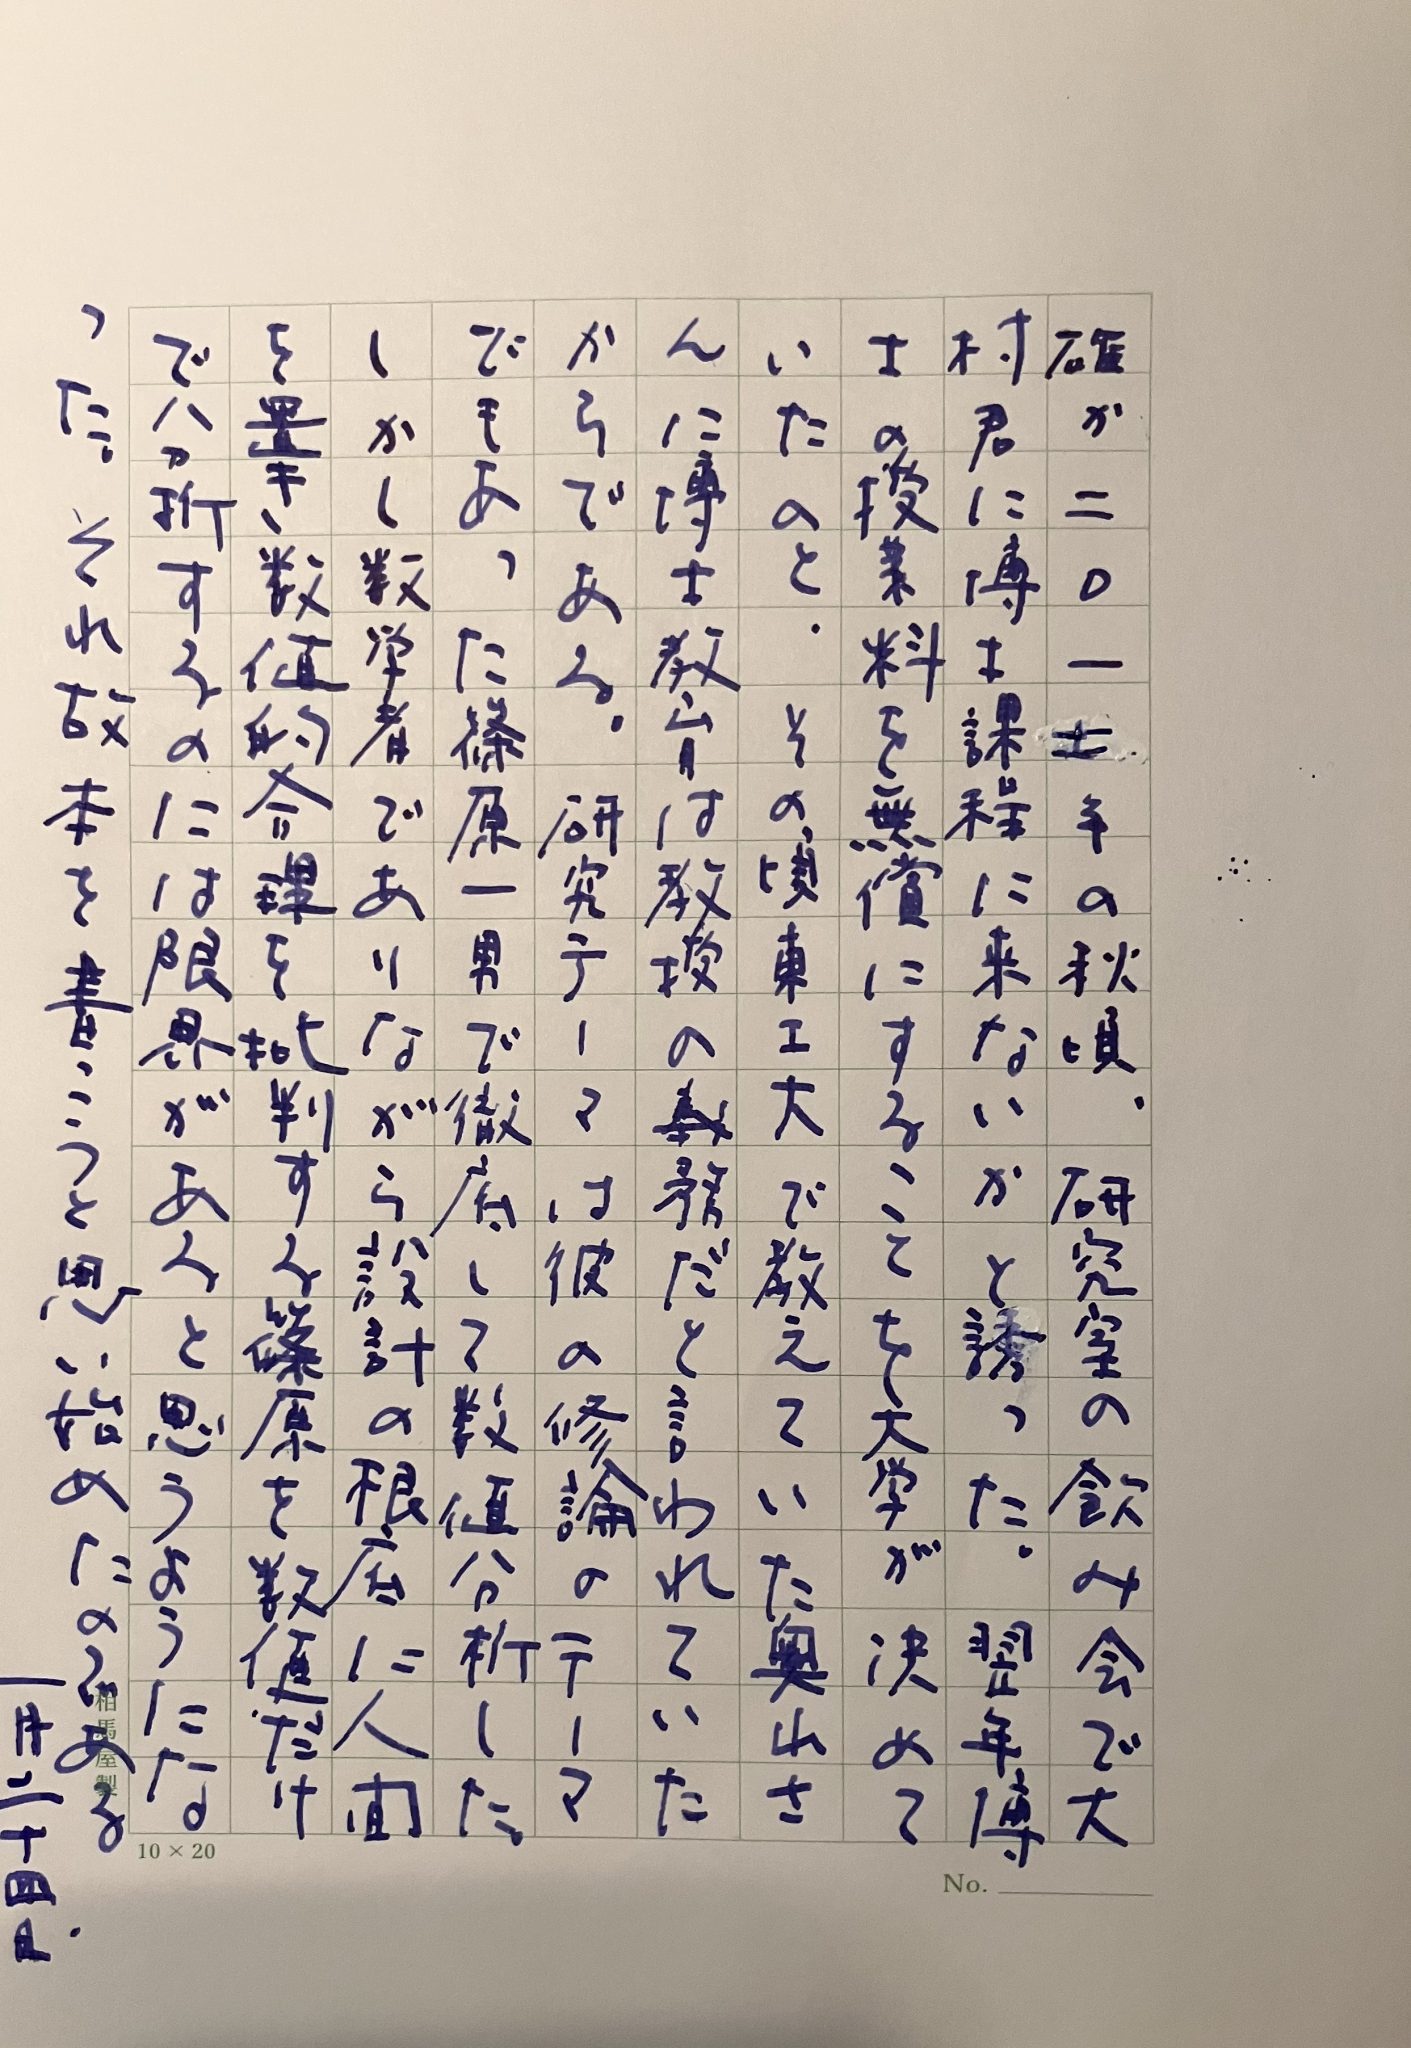 確か二〇一士年の秋頃、研究室の飲み会で大
村君に博士課程に来ないかと誘った。翌年博
士の授業料を無償にすることを大学が決めて
いたのと、その頃東工大で教えていた奥山さ
んに博士教育は教授の義務だと言われていた
からである。研究テーマは彼の修論のテーマ
でもあった篠原一男で徹底して数値分析した。
しかし数学者でありながら設計の根底に人間
を置き、数値的合理を批判する篠原を数値だけ
で分析するのには限界があると思うようにな
った。それ故本を書こうと思い始めたのである
一月二十四日.
相馬屋製
10 × 20
No.